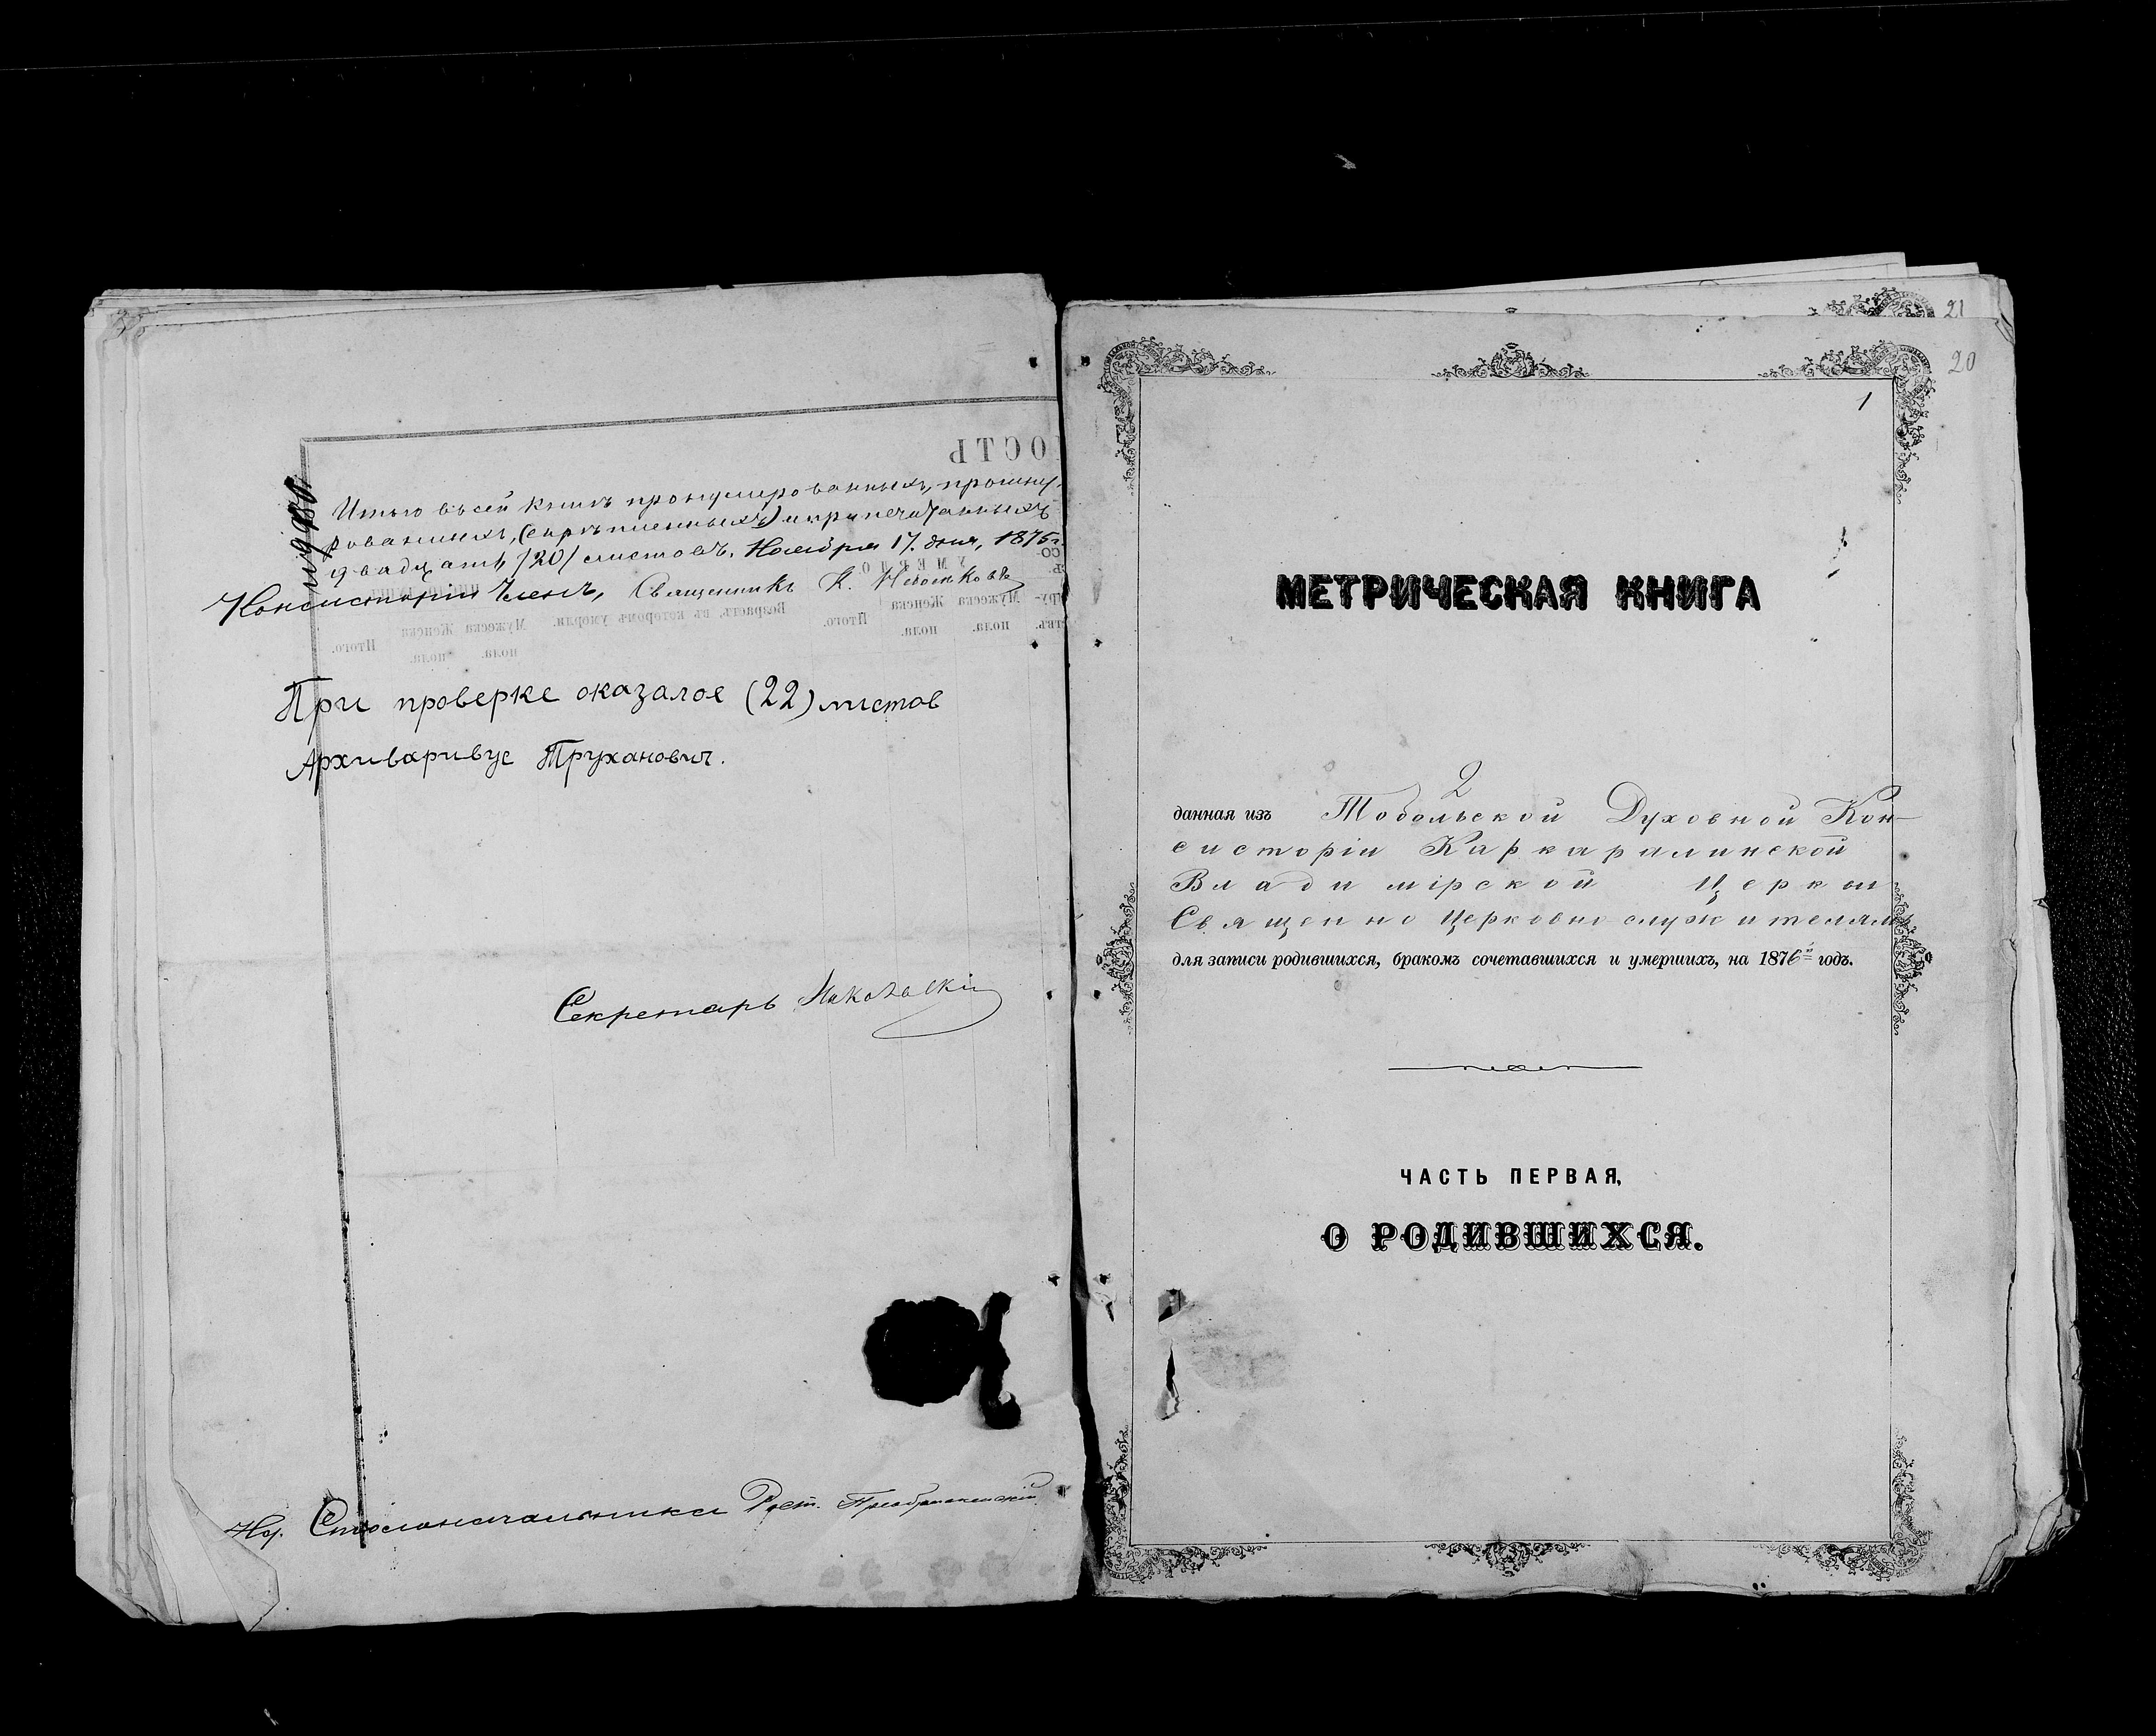 Итого въ сей книгѣ пронумерованныхъ, прошну-
рованныхъ, (скрѣпленныхъ) и припечатанныхъ
двадцать /20/ листовъ. Ноября 17. дня, 1875 г.
Консисторіи Членъ, Священникъ К.
При проверке оказалос (22) листов
Архиваривус Труханович.
Секретарь
Столоначальника
21
20
1
МЕТРИЧЕСКАЯ КНИГА
2
данная изъ Тобольской Духовной Кон-
систоріи Каркаралинской
Владимірской Церкви
Священно Церковно служителямъ
для записи родившихся, бракомъ сочетавшихся и умершихъ, на 1876й годъ.
ЧАСТЬ ПЕРВАЯ,
О РОДИВШИХСЯ.